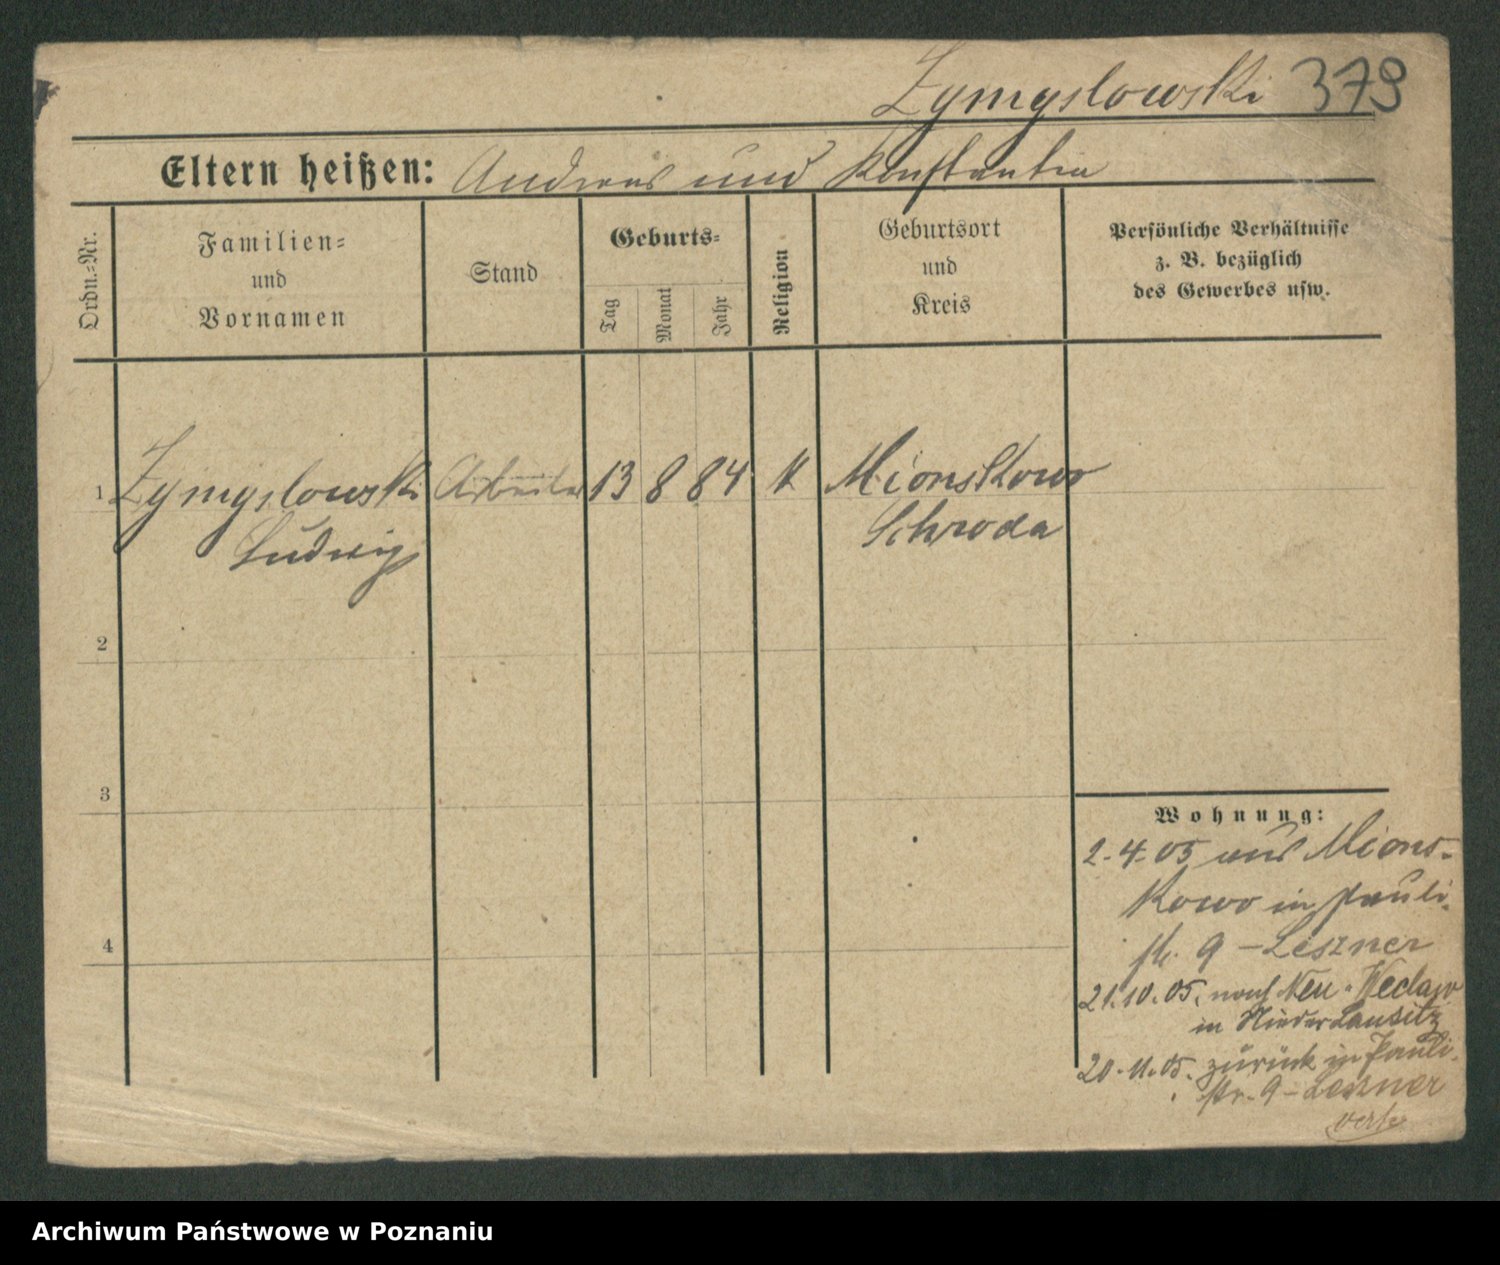 Zymyslowski 379
Eltern heißen: Andreas und Konstantia
Ordn.=Nr.
Familien=
und
Vornamen
Stand
Geburts=
Tag
Monat
Jahr
Religion
Geburtsort
und
Kreis
Persönliche Verhältnisse
z. B. bezüglich
des Gewerbes usw.
1 Zymyslowski Arbeiter 13 8 84 K Mionskowo
Ludwig Schroda
2
3
4
Wohnung:
2.4.05 aus Mions-
kowo in Pauli-
str. 9 – Leszner
21.10.05. nach Neu-
in Niederlausitz
20.11.05. zurück in Pauli-
str. 9 – Leszner
verte
Archiwum Państwowe w Poznaniu